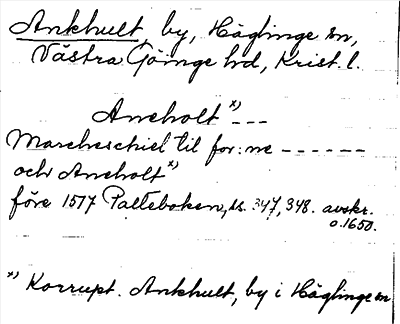 Ankhult, by, Häglinge sn,
Västra Göinge hd, Krist. l.
Ancholt *) ---
Marcheschiel til for: ne ------
och Ancholt *)
före 1517 Palteboken, ss. 347, 348. avskr.
o. 1650.
*) Korrupt. Ankhult, by i Häglinge sn